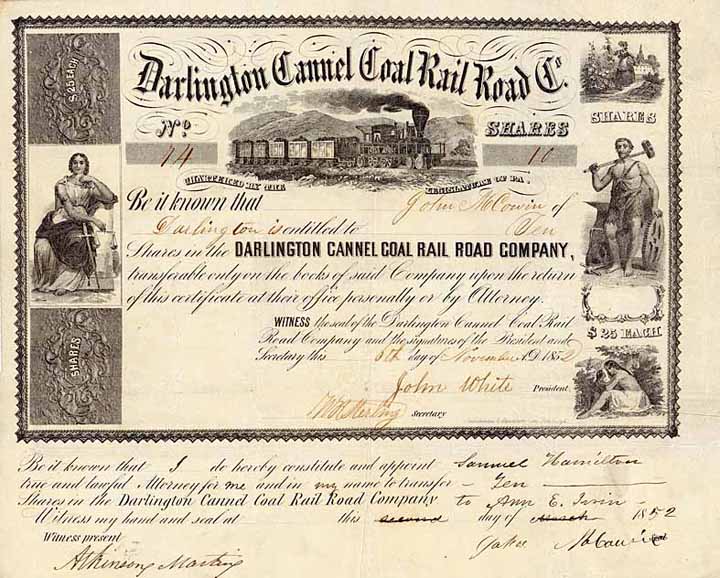 Darlington Cannel Coal Rail Road Co.
$25 EACH
No. SHARES
SHARES
14 10
CHARTERED BY THE LEGISLATURE OF PA.
Be it known that John McCowin of
Darlington is entitled to Ten
Shares in the DARLINGTON CANNEL COAL RAIL ROAD COMPANY,
transferable only on the books of said Company upon the return
of this certificate at their office personally or by Attorney.
WITNESS the seal of the Darlington Cannel Coal Rail
Road Company and the signatures of the President and
Secretary this 8th day of November AD 1852
$25 EACH
SHARES
John White President,
Sterling Secretary
Be it known that I do hereby constitute and appoint Samuel Hamilton
true and lawful Attorney for me and in my name to transfer Ten
Shares in the Darlington Cannel Coal Rail Road Company to Ann E. Irvin
Witness my hand and seal at this second day of March 1852
Witness present
Atkinson Martin